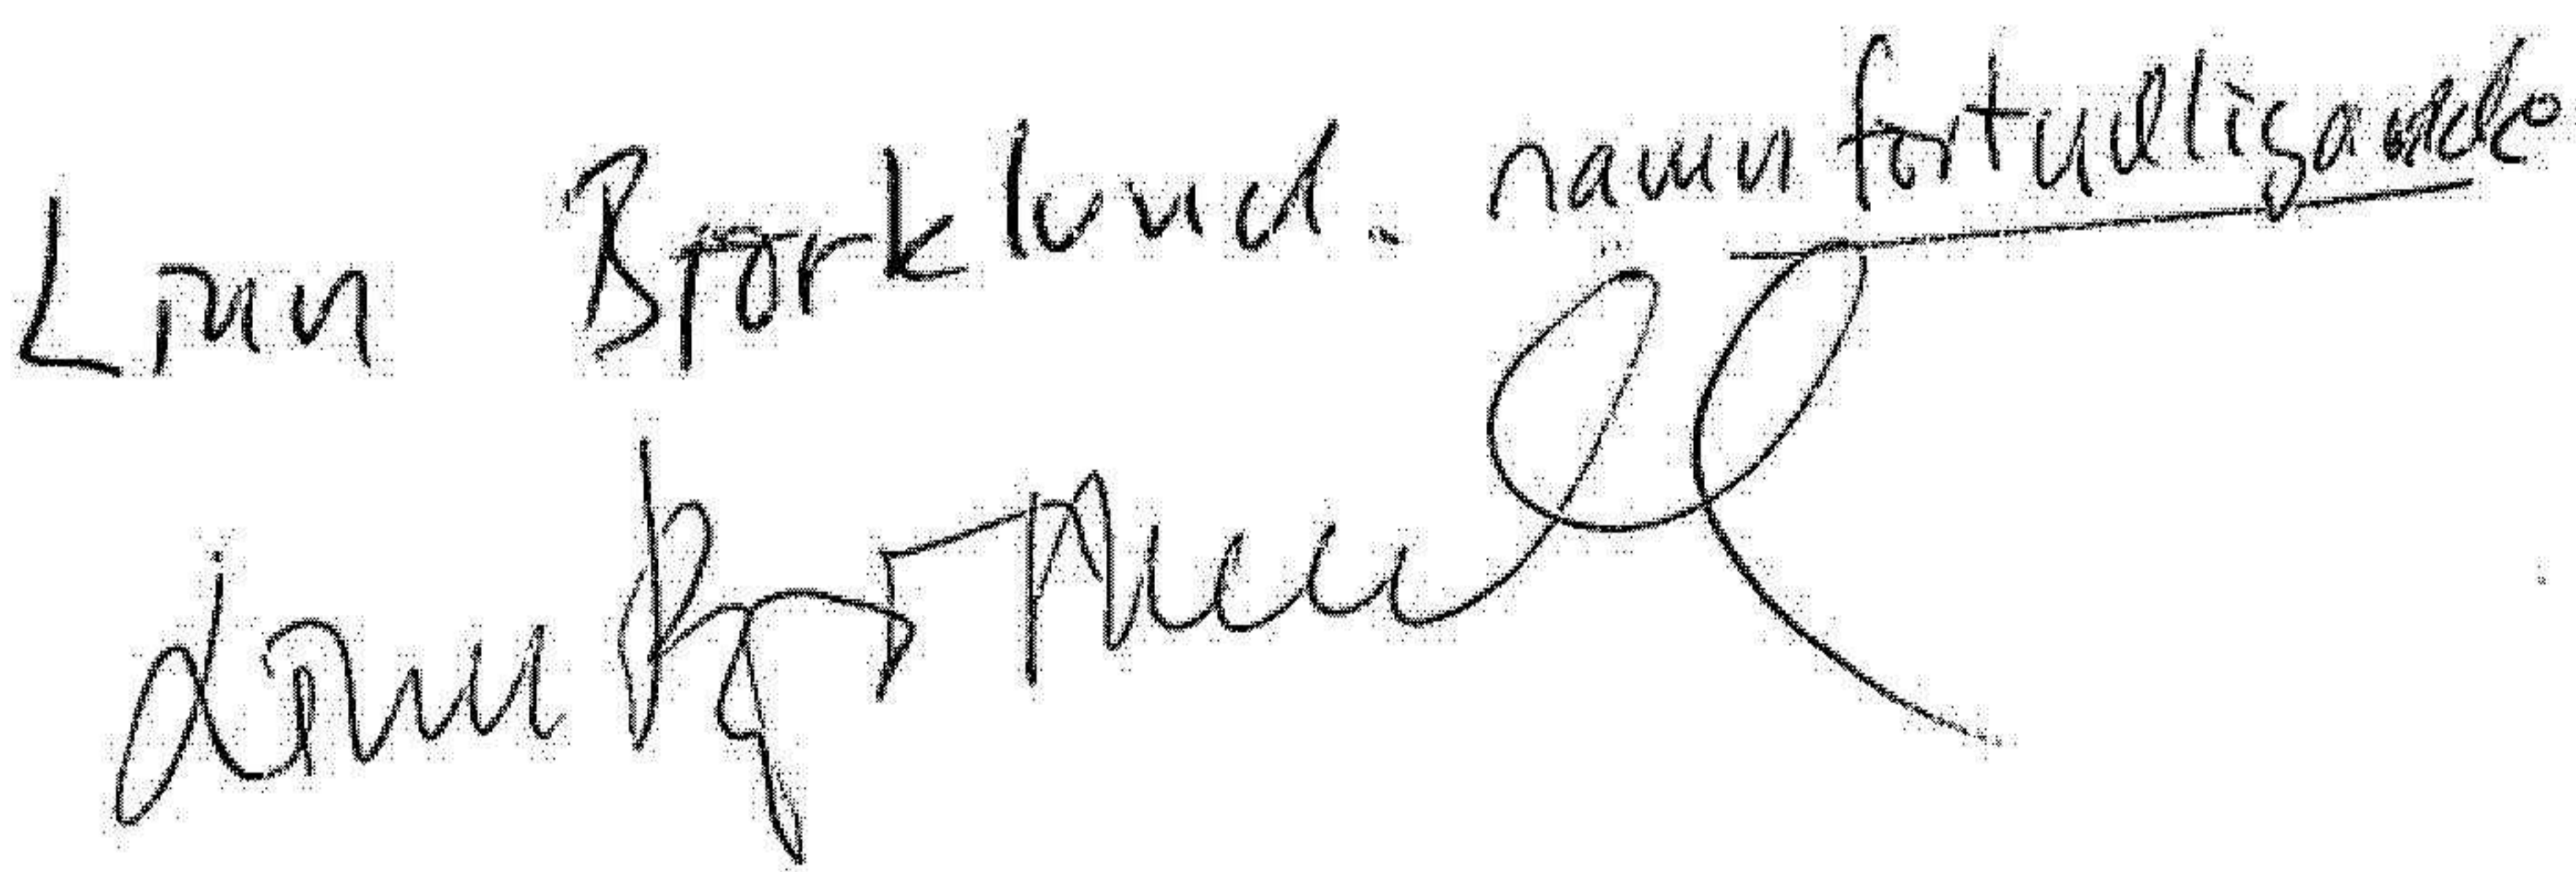 Linn Björklund. namnförtydligande
Linn Björklund